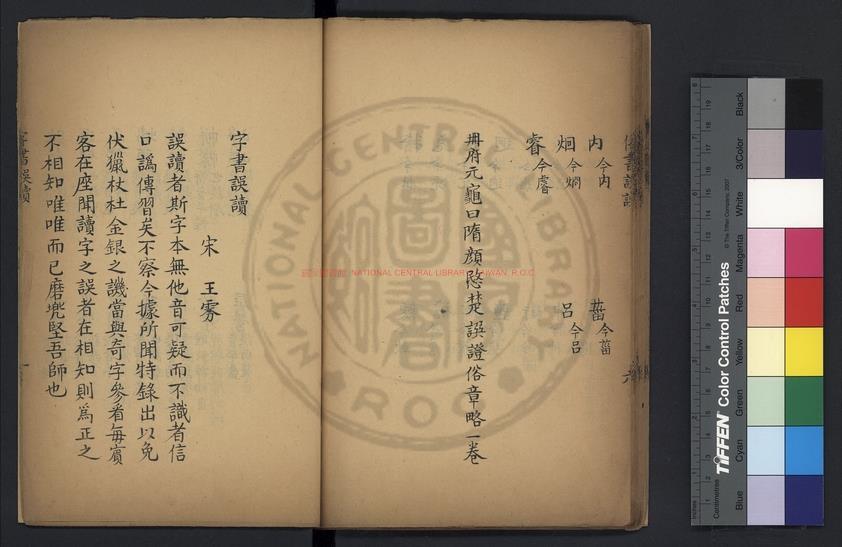 内 今内 𦽏 今菑
烱 今炯 吕 今呂
睿 今睿
冊府元龜曰隋顏愍楚誤證俗章略一卷
字書誤讀
宋 王雱
誤讀者斯字本無他音可疑而不識者信
口譌傳習矣不察今據所聞特錄出以免
伏獵杖杜金銀之譏當與奇字參看每賓
客在座聞讀字之誤者在相知則爲正之
不相知唯唯而已磨兜堅吾師也
字書誤讀
一
NATIONAL CENTRAL LIBRARY
R.O.C.
國家圖書館 NATIONAL CENTRAL LIBRARY, TAIWAN, R.O.C
TIFFEN Color Control Patches
© The Tiffen Company, 2007
Centimetres
Inches
Blue
Cyan
Green
Yellow
Red
Magenta
White
3/Color
Black